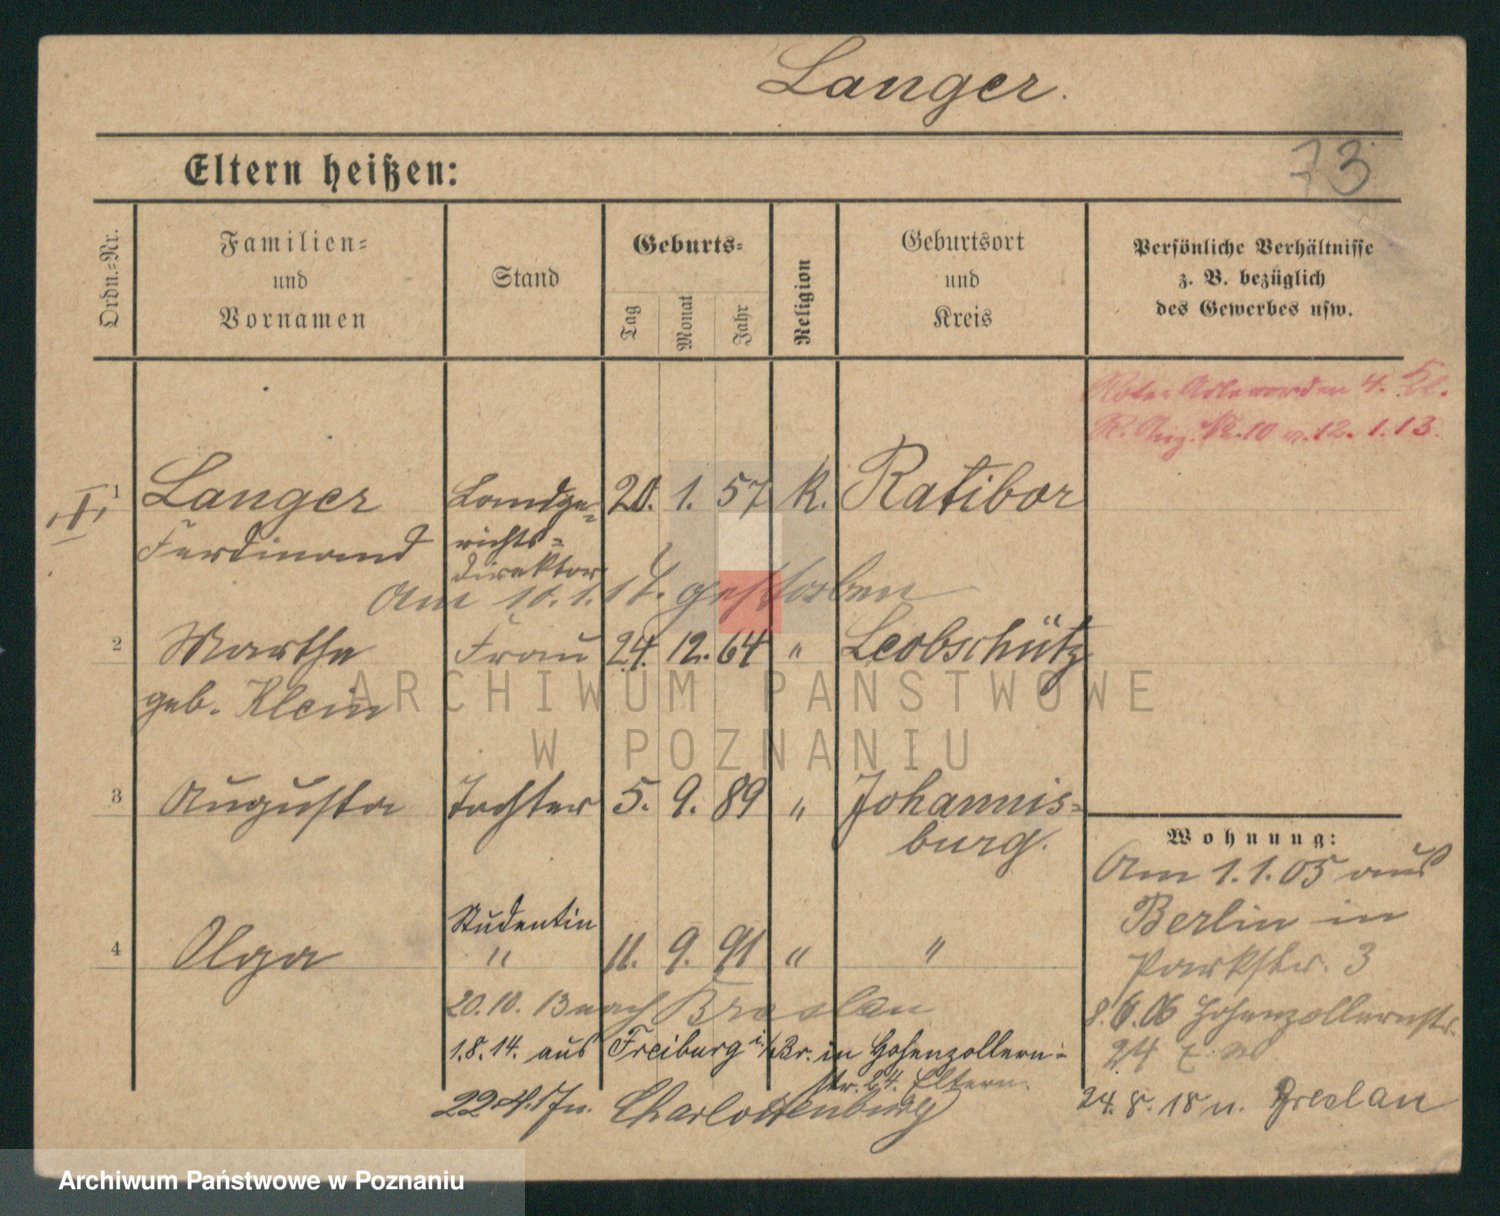 Langer.
73
Eltern heißen:
Ordn.-Nr.
Familien-
und
Vornamen
Stand
Geburts-
Tag
Monat
Jahr
Religion
Geburtsort
und
Kreis
Persönliche Verhältnisse
z. B. bezüglich
des Gewerbes usw.
Roter Adlerorden 4. Kl.
R. Anz. Nr. 10 v. 12. 1. 13.
1 Langer Landge- 20. 1. 57 k. Ratibor
Ferdinand richts-
direktor
Am 10.1.17. gestorben
2 Martha Frau 24. 12. 64 " Leobschütz
geb. Klein
3 Augusta Tochter 5. 9. 89 " Johannis-
burg.
Studentin
4 Olga " 11. 9. 91 " "
20.10.13 nach Breslau
1.8.14. aus Freiburg i/Br. in Hohenzollern-
str. 24. Eltern.
22.4.17 n. Charlottenburg
Wohnung:
Am 1.1.05 aus
Berlin in
Parkstr. 3
8.6.06 Hohenzollernstr.
24
24.8.18 n. Breslau
ARCHIWUM PAŃSTWOWE
W POZNANIU
Archiwum Państwowe w Poznaniu